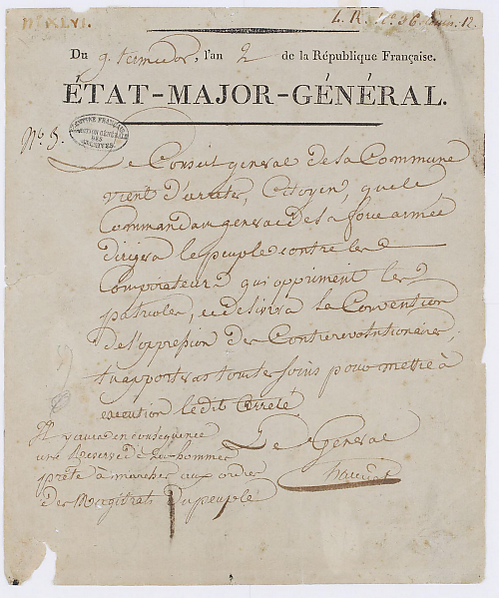 N° XLVI.
L. R. N° 36
Du 9. termidor, l'an 2 de la République Française.
ÉTAT-MAJOR-GÉNÉRAL.
N° 5.
Le Conseil general de la Commune
vient d'arreter, Citoyen, que le
Commandant general de la force armée
dirigera le peuple contre les
Conspirateurs qui oppriment les
patriotes, et delivrera la Convention
de l'oppression des Contrerevolutionaires;
tu apporteras tous tes soins pour mettre à
execution ledit arreté
Le General
hanriot
Il y aura en consequence
une reserve de hommes
prete à marcher aux ordres
des Magistrats du peuple